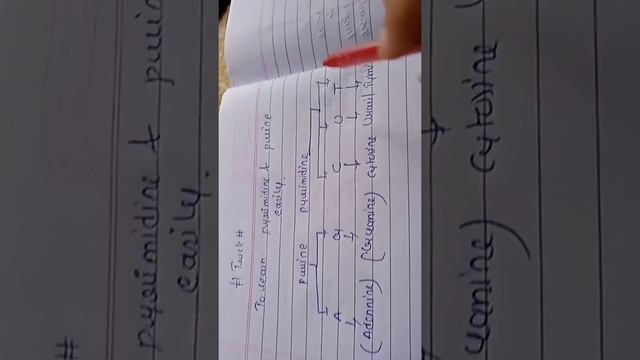 # Trick #
To learn pyrimidine & purine
easily.
purine pyrimidine
A G C U T
(Adennine) (Guanine) Cytosine Uracil Tymi
pyrimidine & purin
easily.
#
uanine) Cytosine U